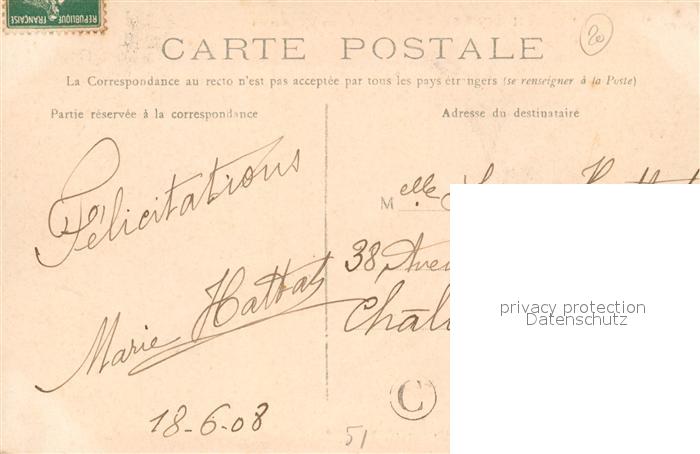 RÉPUBLIQUE FRANÇAISE
CARTE POSTALE
20
La Correspondance au recto n'est pas acceptée par tous les pays étrangers (se renseigner à la Poste)
Partie réservée à la correspondance
Félicitations
Marie Hattat
18-6-08
Adresse du destinataire
Melle
38 Ave
Châl
C
51
privacy protection
Datenschutz